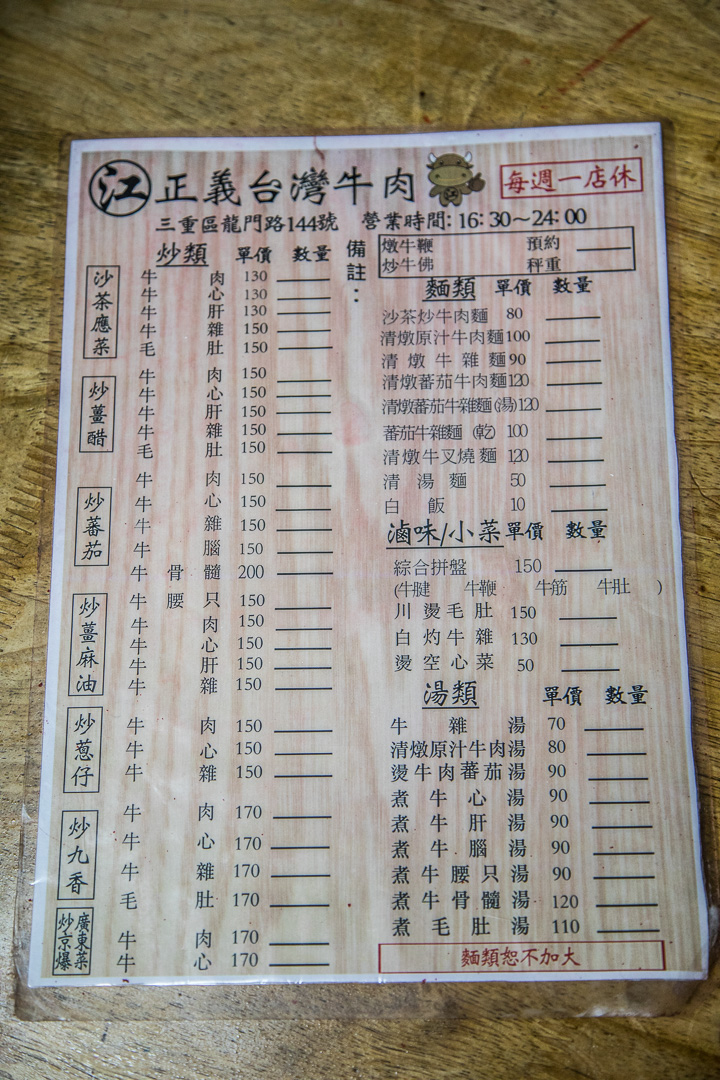 江 正義台灣牛肉 每週一店休
三重區龍門路144號 營業時間: 16:30~24:00
炒類 單價 數量
沙茶應菜
牛肉 130
牛心 130
牛肝 130
牛雜 150
毛肚 150
炒薑醋
牛肉 150
牛心 150
牛肝 150
牛雜 150
毛肚 150
炒蕃茄
牛肉 150
牛心 150
牛雜 150
牛腦 150
牛骨髓 200
炒薑麻油
牛腰只 150
牛肉 150
牛心 150
牛肝 150
牛雜 150
炒蔥仔
牛肉 150
牛心 150
牛雜 150
炒九香
牛肉 170
牛心 170
牛雜 170
毛肚 170
廣東菜
炒京爆
牛肉 170
牛心 170
備註:
燉牛鞭 預約
炒牛佛 秤重
麵類 單價 數量
沙茶炒牛肉麵 80
清燉原汁牛肉麵 100
清燉牛雜麵 90
清燉蕃茄牛肉麵 120
清燉蕃茄牛雜麵(湯) 120
蕃茄牛雜麵(乾) 100
清燉牛叉燒麵 120
清湯麵 50
白飯 10
滷味/小菜 單價 數量
綜合拼盤 150
(牛腱 牛鞭 牛筋 牛肚 )
川燙毛肚 150
白灼牛雜 130
燙空心菜 50
湯類 單價 數量
牛雜湯 70
清燉原汁牛肉湯 80
燙牛肉蕃茄湯 90
煮牛心湯 90
煮牛肝湯 90
煮牛腦湯 90
煮牛腰只湯 90
煮牛骨髓湯 120
煮毛肚湯 110
麵類恕不加大